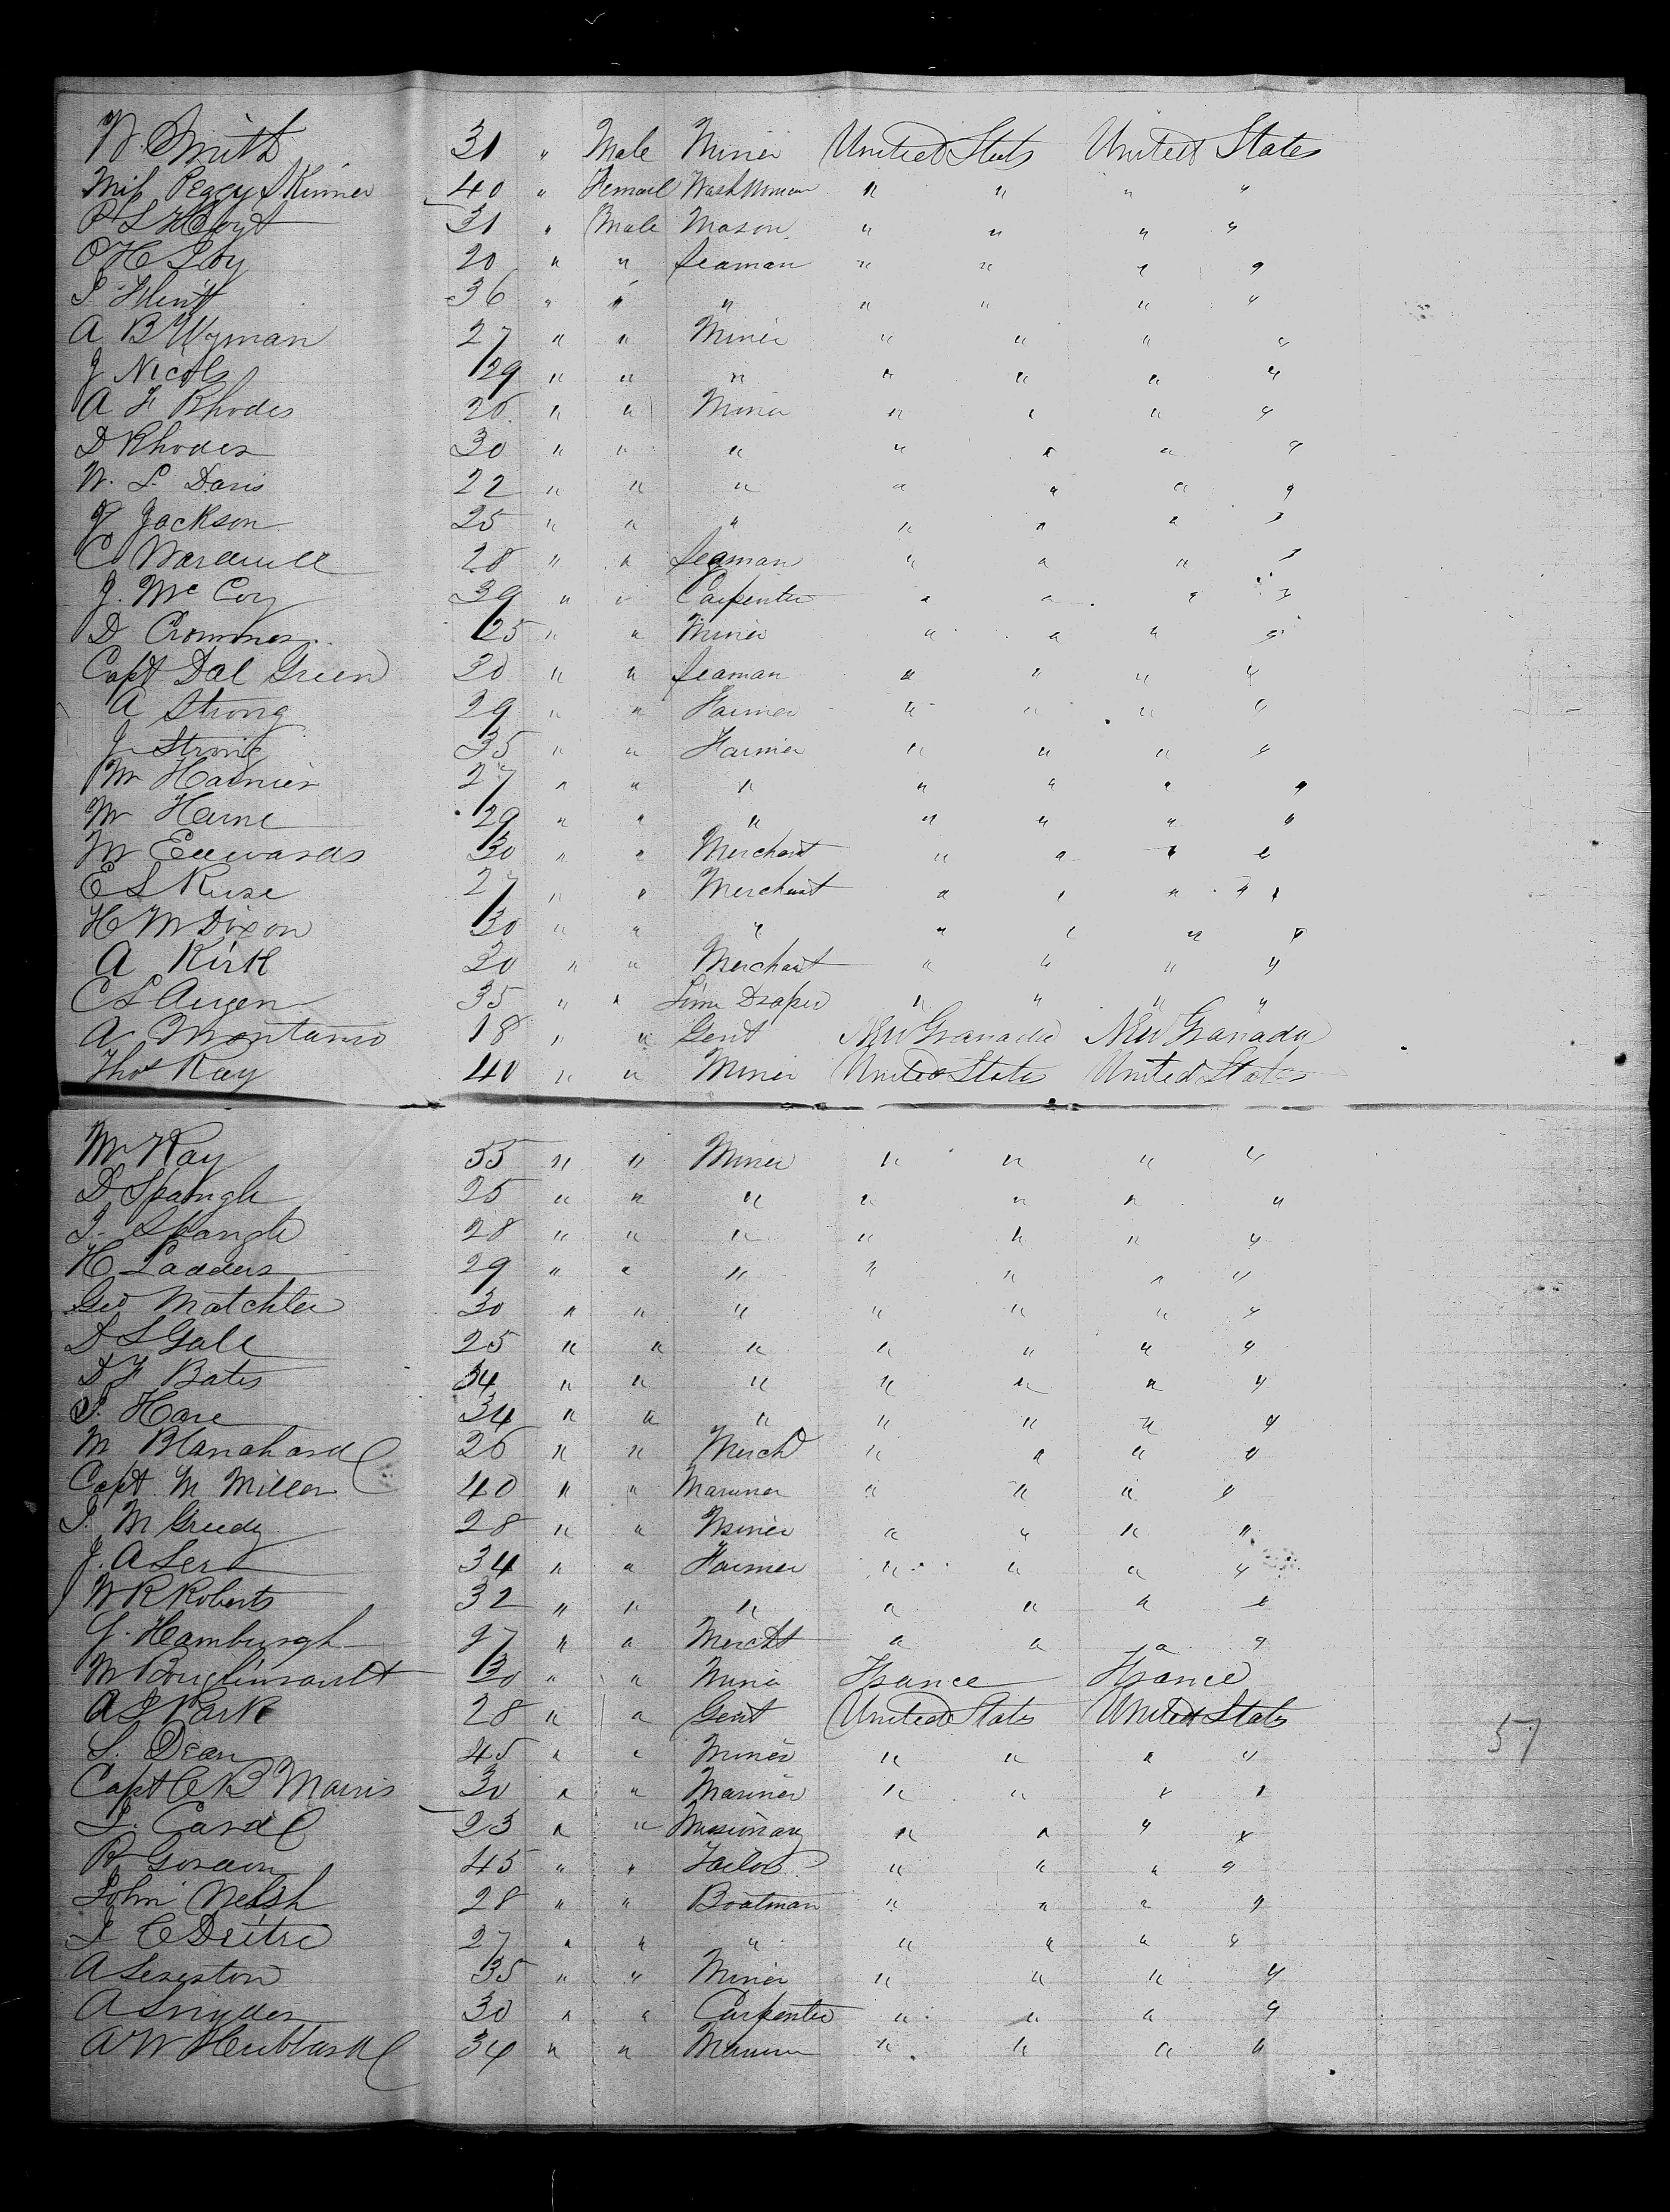 W. Smith 31 " Male Miner United States United States
Miss Peggy Skinner 40 " Femail Washwoman " " " "
P L Hoyt 31 " Male Mason " " " "
O H Loy 20 " " Seaman " " " "
36 " " " " " " "
A B Wyman 27 " " Miner " " " "
J Nicols 29 " " " " " " "
A F Rhodes 26 " " Miner " " " "
D Rhodes 30 " " " " " " "
W. L. Davis 22 " " " " " " "
J Jackson 25 " " " " " " "
C Wardwell 28 " " Seaman " " " "
J. McCoy 39 " " Carpenter " " " "
D Crommer 25 " " Miner " " " "
Capt Dal Green 30 " " Seaman " " " "
A Strong 29 " " Farmer " " " "
J Strong 35 " " Farmer " " " "
Mr 27 " " " " " " "
Mr Harne 29 " " " " " " "
M Edwards 30 " " Merchant " " " "
E L Ruse 27 " " Merchant " " " "
H M Dixon 30 " " " " " " "
A Kirk 30 " " Merchant " " " "
C L Augen 35 " " Draper " " " "
A Montano 18 " " Gent New Granada New Granada
Thos Ray 40 " " Miner United States United States
Mr Ray 35 " " Miner " " " "
D Spangle 25 " " " " " " "
J. Spangle 28 " " " " " " "
H Ladders 29 " " " " " " "
Geo Matchler 30 " " " " " " "
D L Gale 25 " " " " " " "
D F Bates 34 " " " " " " "
S. Hare 34 " " " " " " "
M Blanchard 26 " " Mercht " " " "
Capt M Miller 40 " " Mariner " " " "
J. M Greedy 28 " " Miner " " " "
J. A 34 " " Farmer " " " "
W R Roberts 32 " " " " " " "
J. Hamburgh 27 " " Mercht " " " "
M 30 " " Miner France France
A S Park 28 " " Gent United States United States
S. Dean 45 " " Miner " " " "
57
Capt C B Marris 30 " " Mariner " " " "
S. Card 23 " " Missionary " " " "
R Gordon 45 " " Tailor " " " "
John Welsh 28 " " Boatman " " " "
J C 27 " " " " " " "
A 35 " " Miner " " " "
A Snyder 30 " " Carpenter " " " "
A W Hubbard 34 " " Mariner " " " "